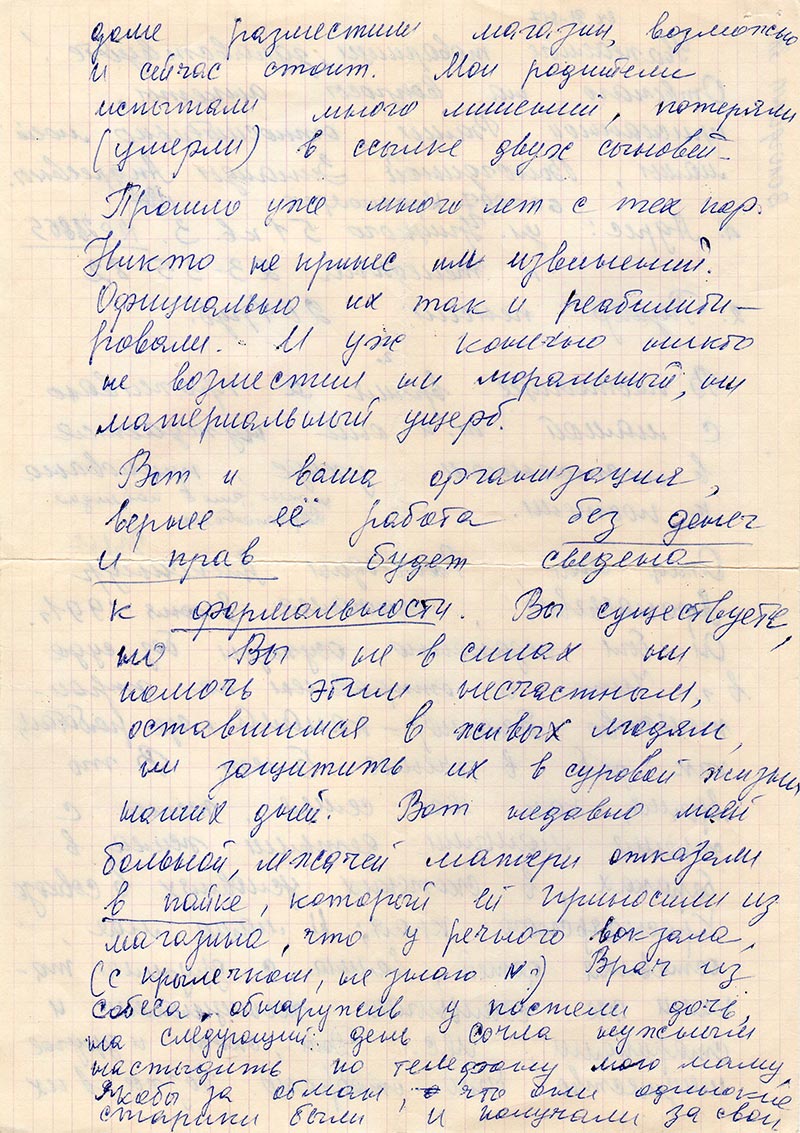 доме разместили магазин, возможно
и сейчас стоит. Мои родители
испытали много лишений, потеряли
(умерли) в ссылке двух сыновей.
Прошло уже много лет с тех пор.
Никто не принес им извинений.
Официально их так и реабилити-
ровали. И уж конечно никто
не возместил ни моральный, ни
материальный ущерб.
Вот и ваша организация,
вернее её работа без денег
и прав будет сведена
к формальности. Вы существуете,
но Вы не в силах ни
помочь этим несчастным,
оставшимся в живых людям,
ни защитить их в суровой жизни
наших дней. Вот недавно моей
больной, лежачей матери отказали
в пайке, который ей приносили из
магазина, что у речного вокзала,
(с крылечком, не знаю №) Врач из
собеса, обнаружив у постели дочь,
на следующий день сочла нужным
настыдить по телефону мою маму,
якобы за обман, что они одинокие
старики были и получали за свои